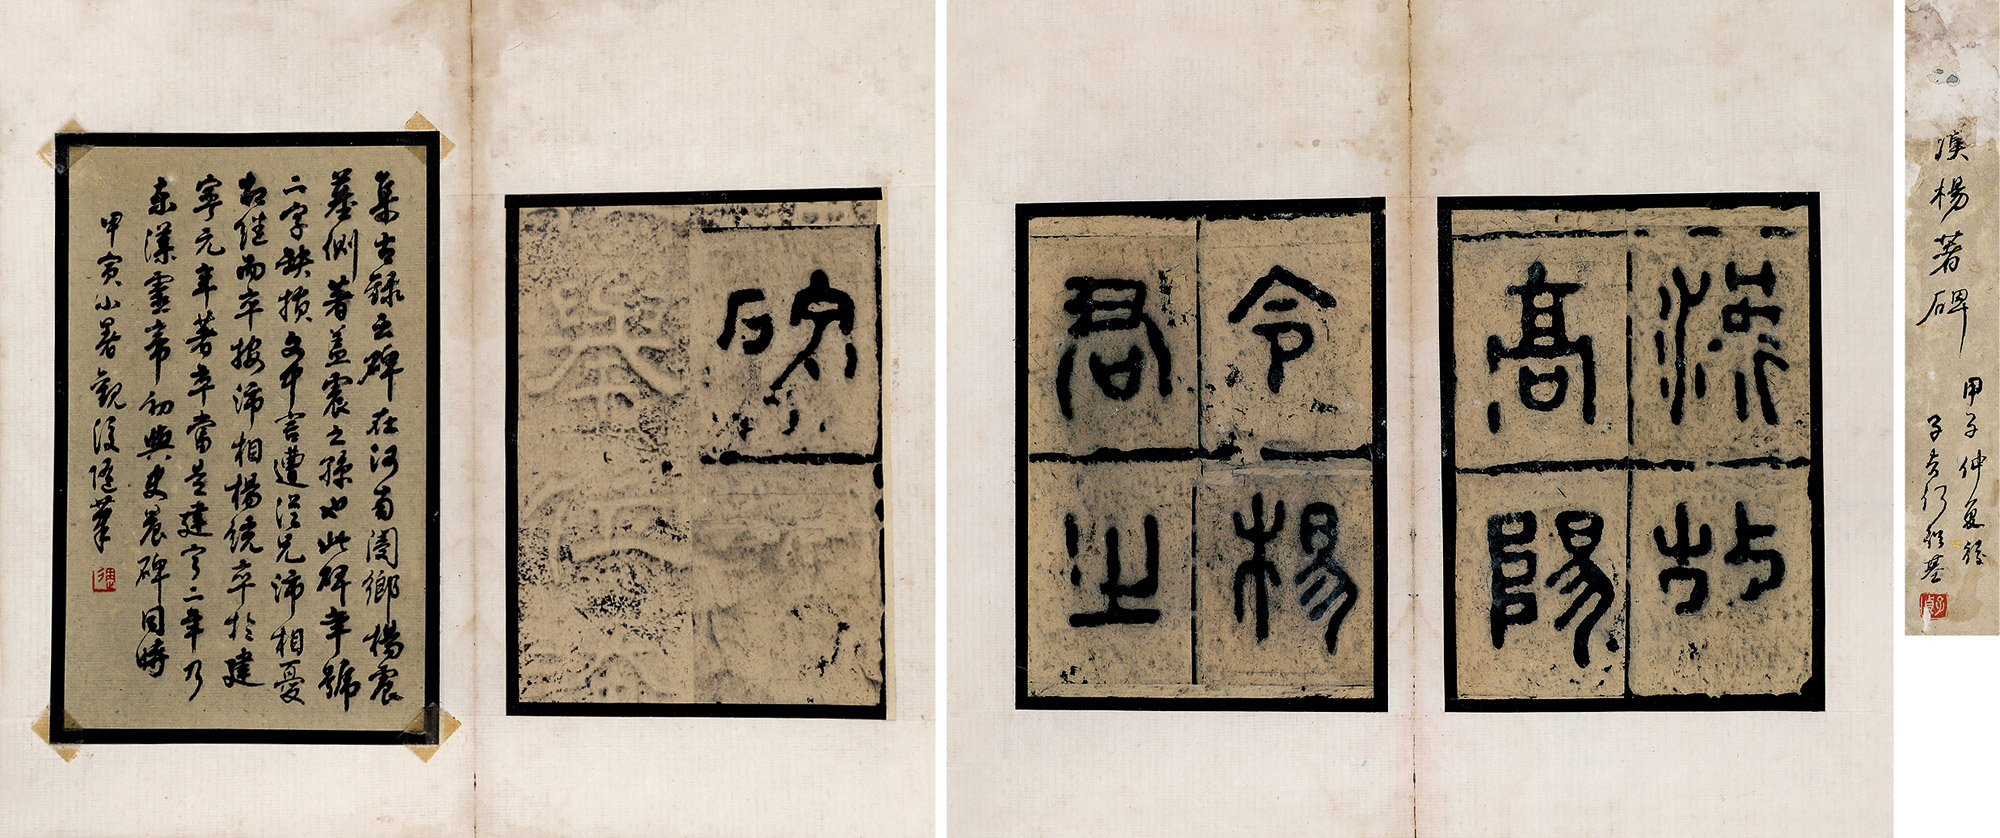 漢楊著碑
甲子仲夏後
子貞何紹基
漢故
高陽
令楊
君之
碑
集古錄云碑在河南閿鄉楊震
墓側著蓋震之孫也此碑年號
二字缺損文中言遭從兄沛相憂
相繼而卒按沛相楊統卒於建
寧元年著卒當是建寧二年乃
東漢靈帝初與史晨碑同時
甲寅小暑觀後隨筆